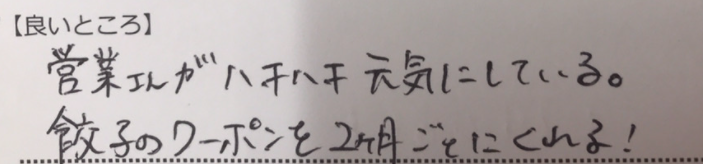 【良いところ】
営業さんがハキハキ元気にしている。
餃子のクーポンを2ヶ月ごとにくれる！